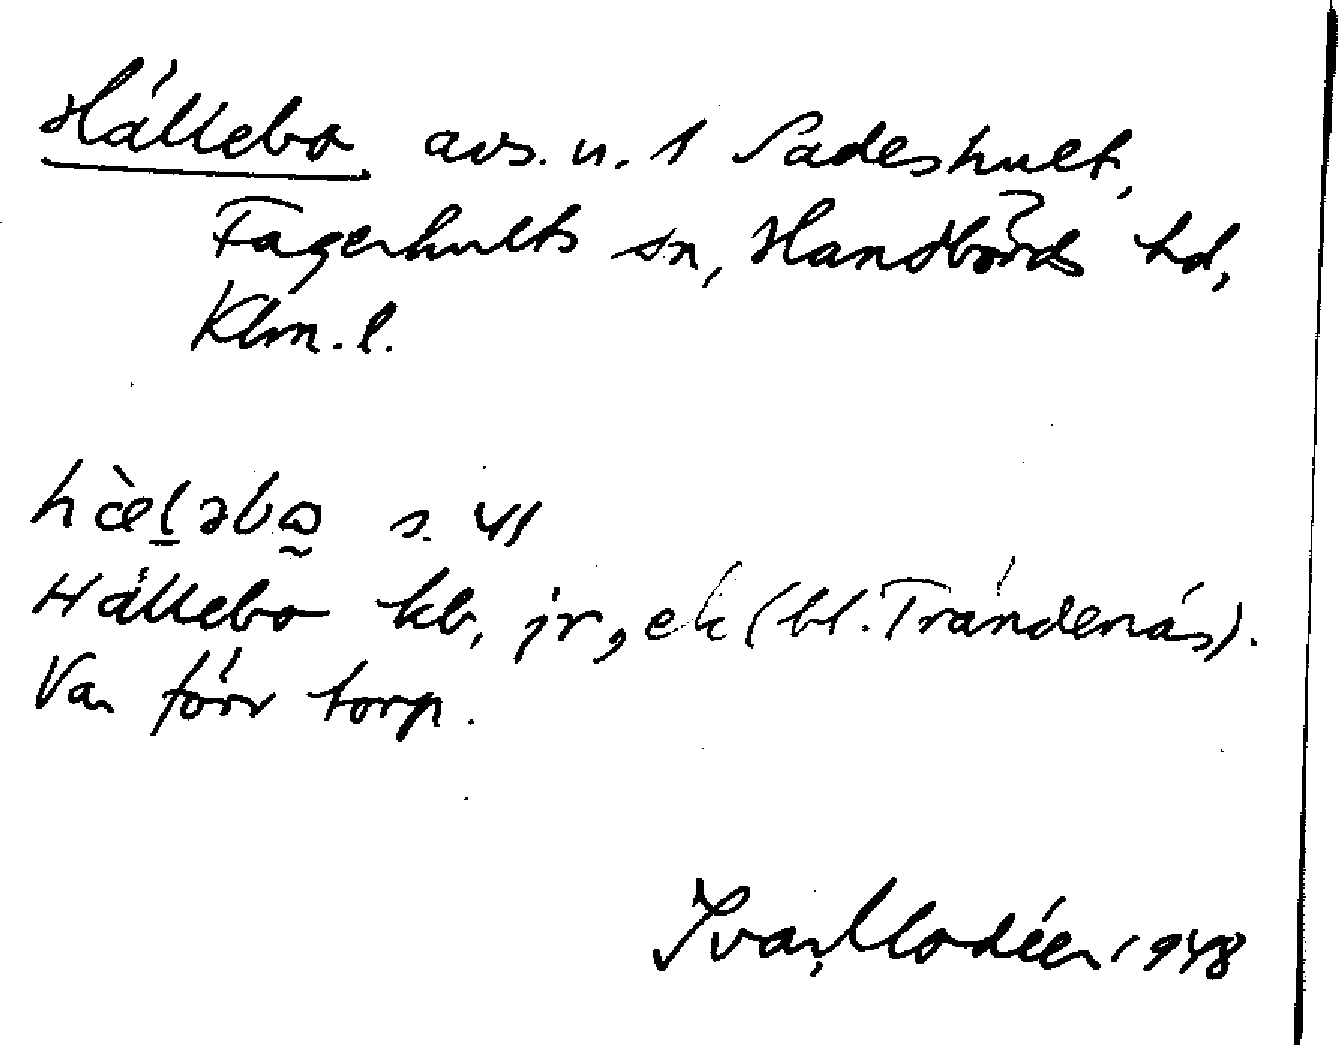 Hällebo avs. u. 1 Sadeshult,
Fagerhults sn, Handbörds hd,
Klm. l.
hæ̀l̠əbꙍ̰ s. 41
Hällebo kb, jr, ek (bl. Trändenäs).
Var förr torp.
Ivar Modéer 1948